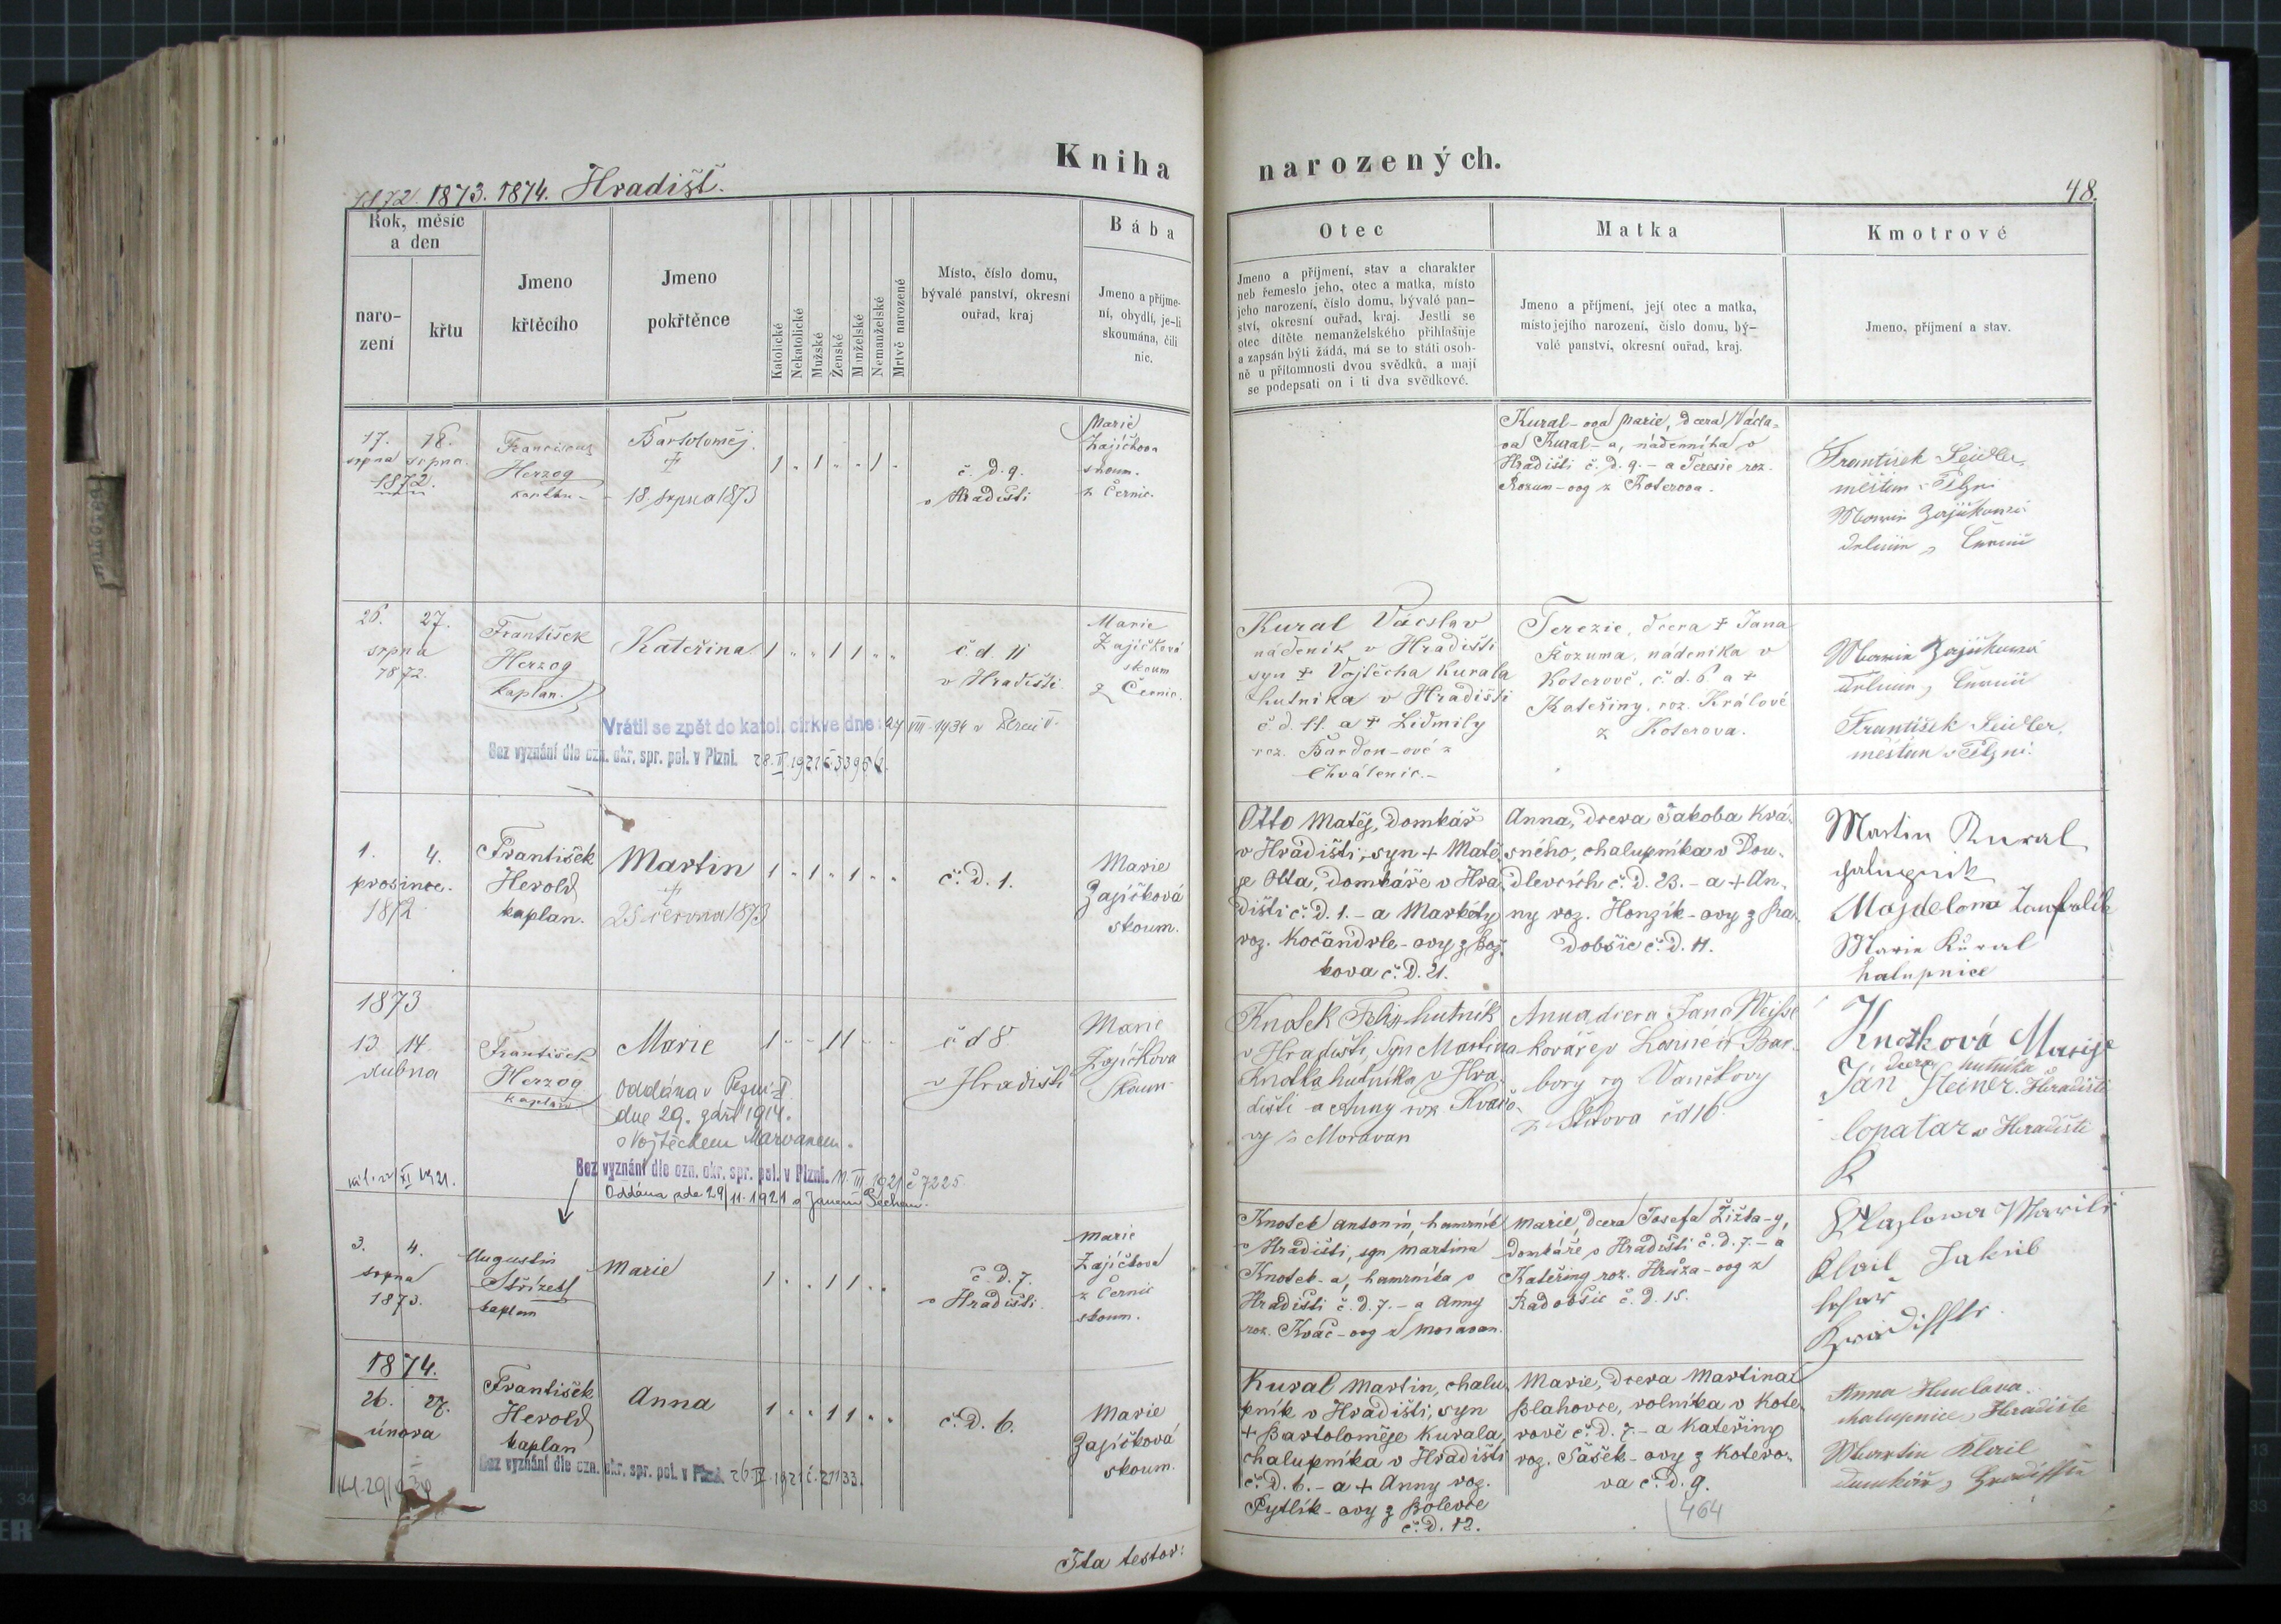 Kniha narozených.
1872. 1873. 1874. Hradišt.
48.
Rok, měsíc
a den
naro-
zení
křtu
Jmeno
křtěcího
Jmeno
pokřtěnce
Katolické
Nekatolické
Mužské
Ženské
Manželské
Nemanželské
Mrtvě narozené
Místo, číslo domu,
bývalé panství, okresní
ouřad, kraj
Bába
Jmeno a příjme-
ní, obydlí, je-li
skoumána, čili
nic.
Otec
Jmeno a příjmení, stav a charakter
neb řemeslo jeho, otec a matka, místo
jeho narození, číslo domu, bývalé pan-
ství, okresní ouřad, kraj. Jestli se
otec dítěte nemanželského přihlašuje
a zapsán býti žádá, má se to státi osob-
ně u přítomnosti dvou svědků, a mají
se podepsati on i ti dva svědkové.
Matka
Jmeno a příjmení, její otec a matka,
místo jejího narození, číslo domu, bý-
valé panství, okresní ouřad, kraj.
Kmotrové
Jmeno, příjmení a stav.
17. 18.
srpna srpna
1872.
Franciscus
Herzog
kaplan
Bartoloměj.
†
18. srpna 1873
1 " 1 " " 1 "
č. d. 9.
v Hradišti
Marie
Zajíčkova
skoum.
z Černic.
Kural-ova Marie, dcera Václa-
va Kural-a, nádenníka v
Hradišti č. d. 9. - a Terezie roz.
Rozum-ovy z Koterova.
František Seidler,
měštan v Plzni
Marie Zajíčková
z Černic
26. 27.
srpna
1872.
František
Herzog
kaplan.
Kateřina
1 " " 1 1 " "
č. d. 11
v Hradišti
Marie
Zajíčková
skoum
z Černic.
Vrátil se zpět do katol. církve dne: 24 VIII. 1934 v Plzni V.
Bez vyznání dle ozn. okr. spr. pol. v Plzni. 28. II. 1921 č. 33956.
Kural Václav
nádeník v Hradišti
syn † Vojtěcha Kurala
hutníka v Hradišti
č. d. 11. a † Lidmily
roz. Bardon-ové z
Chválenic.-
Terezie, dcera † Jana
Rozuma, nádeníka v
Koterově, č. d. 6 a †
Kateřiny, roz. Králové
z Koterova.
Marie Zajíčková
František Seidler,
měštan v Plzni.
1. 4.
prosince.
1872
František
Herold
kaplan.
Martin
†
25 června 1873
1 " 1 " 1 " "
č. d. 1.
Marie
Zajíčková
skoum.
Otto Matěj, domkář
v Hradišti, syn + Matě-
je Otta, domkáře v Hra-
dišti č. d. 1. - a Markéty
roz. Kočandrle-ovy z Bož-
kova č. d. 21.
Anna, dcera Jakoba Krá-
sného, chalupníka v Dou-
dlevcích č. d. 23. - a + An-
ny roz. Honzík-ovy z Ra-
dobšic č. d. 11.
Martin Kural
Majdelona
Marie Kural
halupnice
1873
13. 14.
dubna
František
Herzog
kaplan
Marie
1 " " 1 1 " "
č d 8
v Hradišti
Marie
Zajíčkova
skoum
Oddána v Plzni
dne 29. září 1914.
s Vojtěchem Marvanem.
Bez vyznání dle ozn. okr. spr. pol. v Plzni. 11. III. 1921 č 7225
Oddána zde 29/11. 1921 s Janem Pechem.
Knotek Felix hutník
v Hradišti, syn Martina
Knotka hutníka v Hra-
dišti a Anny roz Kvačo-
vy z Moravan
Anna dcera Jana Weisse
kováře v a Bar-
bory roz Vaněkovy
č d 16
Knotková Marije
dcera hutníka
Ján Steiner. Hradišti
lopatar v Hradišti
3. 4.
srpna
1873.
Augustin
Střízek
kaplan
Marie
1 " " 1 1 " "
č. d. 7.
v Hradišti.
Marie
Zajíčkova
z Černic
skoum.
Knotek Antonín, hamrník
v Hradišti, syn Martina
Knotek-a, hamrníka v
Hradišti č. d. 7. - a Anny
roz. Kvač-ovy z Moravan.
Marie, dcera Josefa Žižka-y,
domkáře v Hradišti č. d. 7. - a
Kateřiny roz. Hrůza-ovy z
Radobšic č. d. 15.
Jakub
1874.
26. 27.
února
František
Herold
kaplan
Anna
1 " " 1 1 " "
č. d. 6.
Marie
Zajíčková
skoum.
Bez vyznání dle ozn. okr. spr. pol. v Plzni. 26 IV. 1921 č. 21133.
Kural Martin, chalu-
pník v Hradišti, syn
+ Bartoloměje Kurala,
chalupníka v Hradišti
č. d. 6. - a + Anny roz.
Pytlík-ovy z Bolevce
č. d. 12.
Marie, dcera Martina
Blahovce, rolníka v Kote-
rově č. d. 7. - a Kateřiny
roz. Šašek-ovy z Kotero-
va č. d. 9.
464
Anna
chalupnice z Hradiště
Martin
Ita testor: